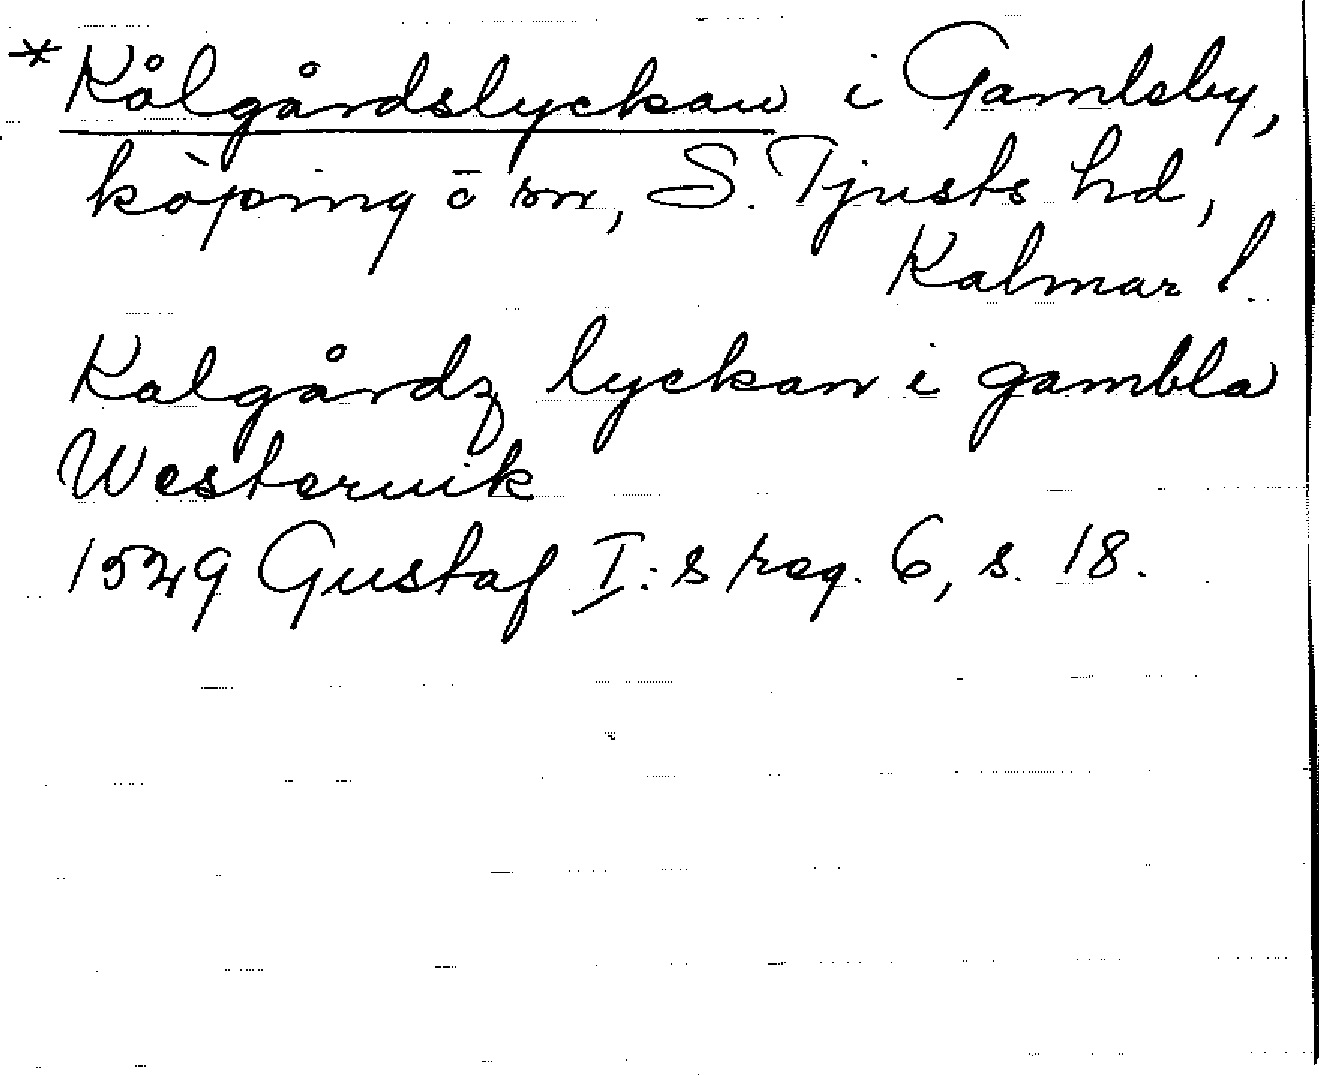 *Kålgårdslyckan i Gamleby,
köping o sn, S. Tjusts hd,
Kalmar l.
Kalgårdz lyckan i gambla
Westerwik
1529 Gustaf I:s reg. 6, s. 18.